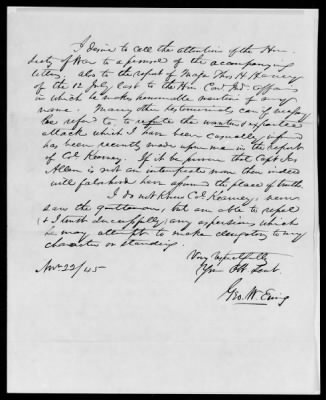 I desire to call the attention of the Hon.
Secty of War to a perusal of the accompanying
letters, also to the report of Major Thos H Harvey
of the 12 July last to the Hon Com Ind. Affairs
in which he makes honorable mention of my
name. Many other testimonials can if necessary
be refer'd to, to refute the wanton &
attack which I have been casually informed
has been recently made upon me in the report
of Col. Kearney. If it be proven that Capt Jas
Allen is not an interested man then indeed
will falsehood here assume the place of truth.
I do not know Col Kearney, never
saw the gentleman, but am able to repel
(& I trust successfully) any aspersions which
he may attempt to make derogatory to my
character or standing.
Very respectfully
Your Obt Servt.
Geo. W. Ewing
Nov 22/45